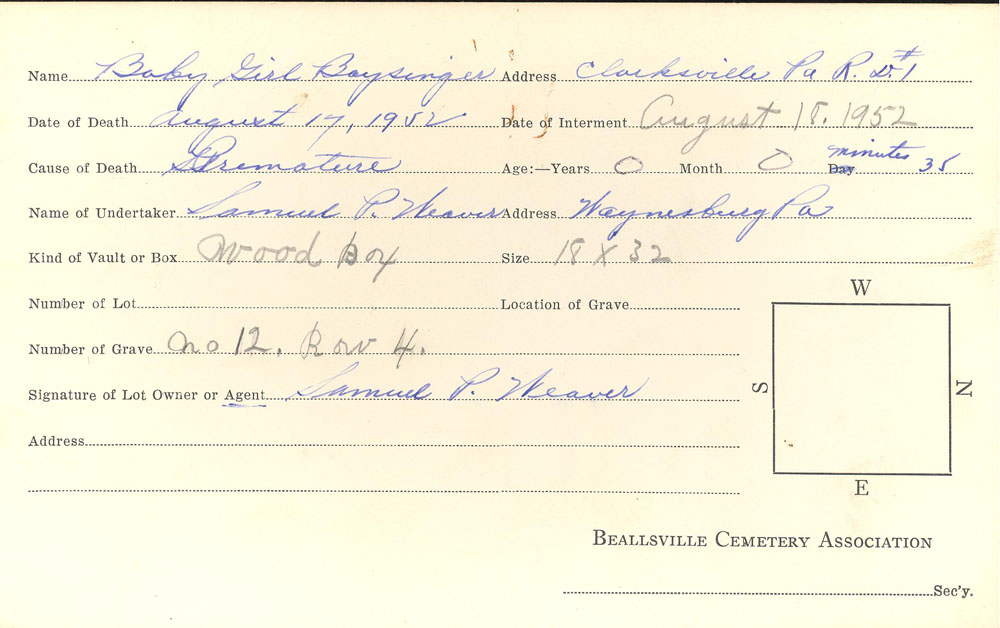 Name Baby Girl Boysinger Address Clarksville Pa R. D. #1
Date of Death August 17, 1952 Date of Interment August 18. 1952
Cause of Death Premature Age:—Years 0 Month 0 Day minutes 35
Name of Undertaker Samuel P. Weaver Address Waynesburg Pa
Kind of Vault or Box Wood Box Size 18 X 32
Number of Lot Location of Grave
W
Number of Grave No 12. Row 4.
Signature of Lot Owner or Agent Samuel P. Weaver
S N
Address
E
BEALLSVILLE CEMETERY ASSOCIATION
Sec'y.